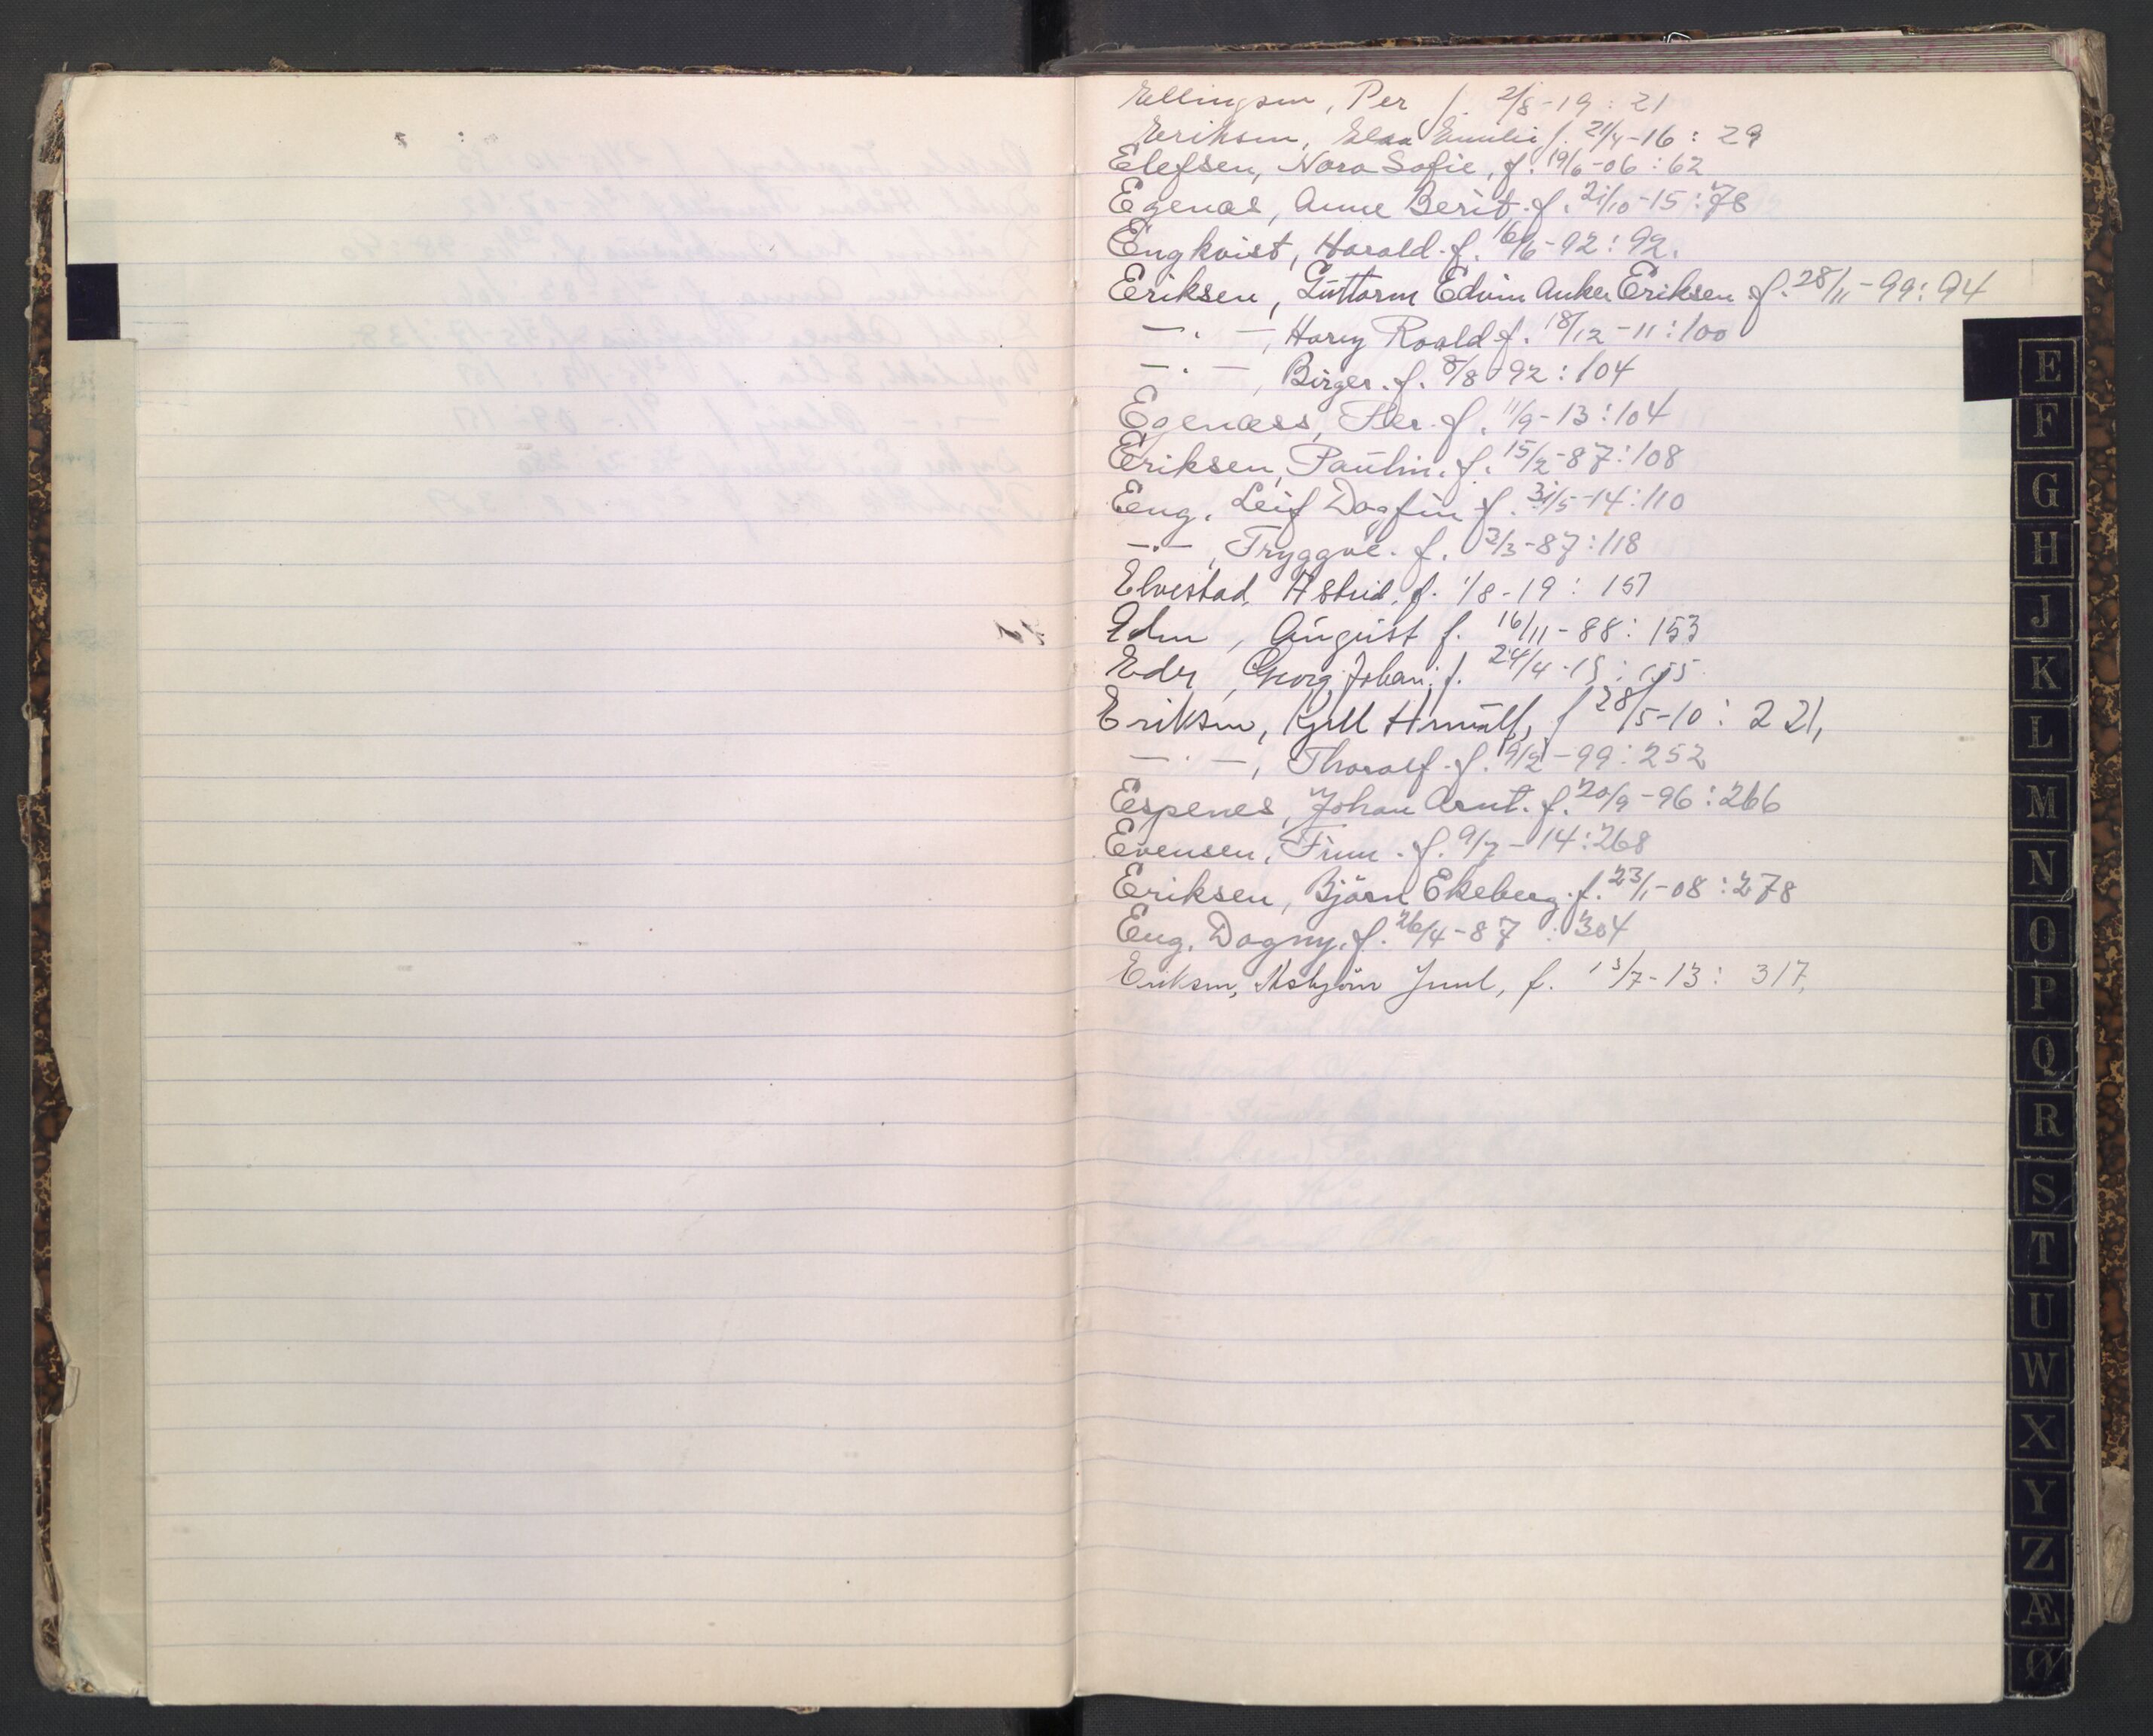 Ellingsen, Per f. 2/8-19: 21
Eriksen, Elsa Emilie f. 21/4-16: 29
Elefsen, Nora Sofie, f. 19/6-06: 62
Egenæs, Anne Berit. f. 21/10-15: 78
Engkvist, Harald. f. 16/6-92: 92.
Eriksen, Guttorm Edvin Anker Eriksen f. 28/11-99: 94
—·—, Harry Roald f. 18/12-11: 100
—·—, Birger. f. 8/8-92: 104
Egenæss, Per. f. 11/9-13: 104
Eriksen, Paulin. f. 15/2-87: 108
Eng, Leif Dagfin f. 31/5-14: 110
—·—, Tryggve. f. 2/3-87: 118
Elvestad, Astrid, f. 1/8-19: 151
August f. 16/11-88: 153
Eder, Georg Johan, f. 24/4-15: 155
Eriksen, Kjell f 28/5-10: 221,
—·—, Thoralf. f. 19/2-99: 252
Espenes, Johan Arnt. f. 20/9-96: 266
Evensen, Finn. f. 9/7-14: 268
Eriksen, Bjørn Ekeberg. f. 23/1-08: 278
Eng, Dagny, f. 26/4-87: 304
Eriksen, Asbjørn Juul, f. 13/7-13: 317,
E
F
G
H
J
K
L
M
N
O
P
Q
R
S
T
U
W
X
Y
Z
Æ
Ø